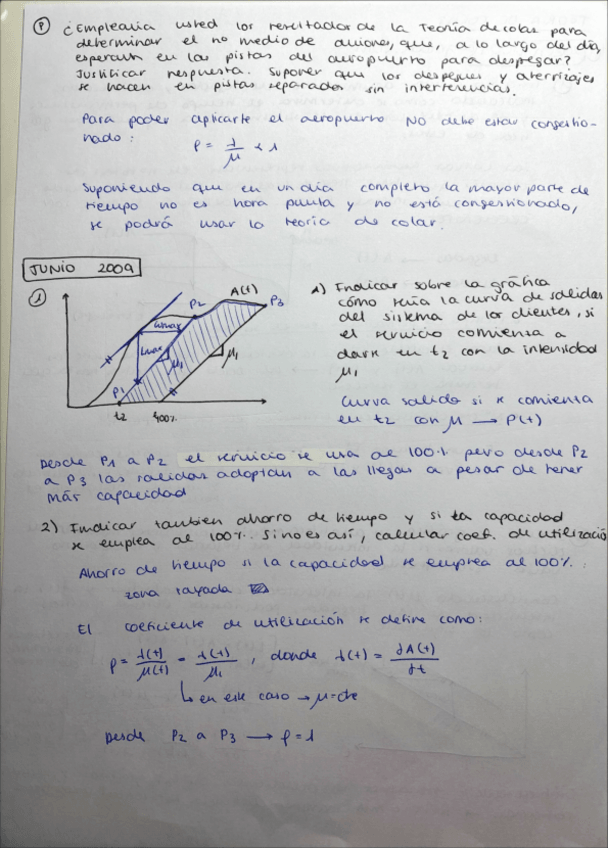 P ¿Emplearía usted los resultados de la Teoría de colas para
determinar el nº medio de aviones, que, a lo largo del día,
esperan en las pistas del aeropuerto para despegar?
Justificar respuesta. Suponer que los despegues y aterrizajes
se hacen en pistas separadas sin interferencias.
Para poder aplicarse el aeropuerto NO debe estar congestio-
nado:
ρ = λ/μ < 1
Suponiendo que en un día completo la mayor parte de
tiempo no es hora punta y no está congestionado,
se podrá usar la teoría de colas.
JUNIO 2009
1
A(t)
P2
P3
Wmax
Lmax
μ1
μ1
P1
t2
100%
1) Indicar sobre la gráfica
cómo sería la curva de salidas
del sistema de los clientes, si
el servicio comienza a
darse en t2 con la intensidad
μ1
Curva salida si se comienza
en t2 con μ → P'(t)
Desde P1 a P2 el servicio se usa al 100% pero desde P2
a P3 las salidas adoptan a las llegas a pesar de tener
más capacidad
2) Indicar también ahorro de tiempo y si la capacidad
se emplea al 100%. Si no es así, calcular coef. de utilizació
Ahorro de tiempo si la capacidad se emplea al 100%:
zona rayada.
El coeficiente de utilización se define como:
ρ = λ(t)/μ(t) = λ(t)/μ1, donde λ(t) = ∂A(t)/∂t
↳ en este caso → μ = cte
Desde P2 a P3 → ρ = 1